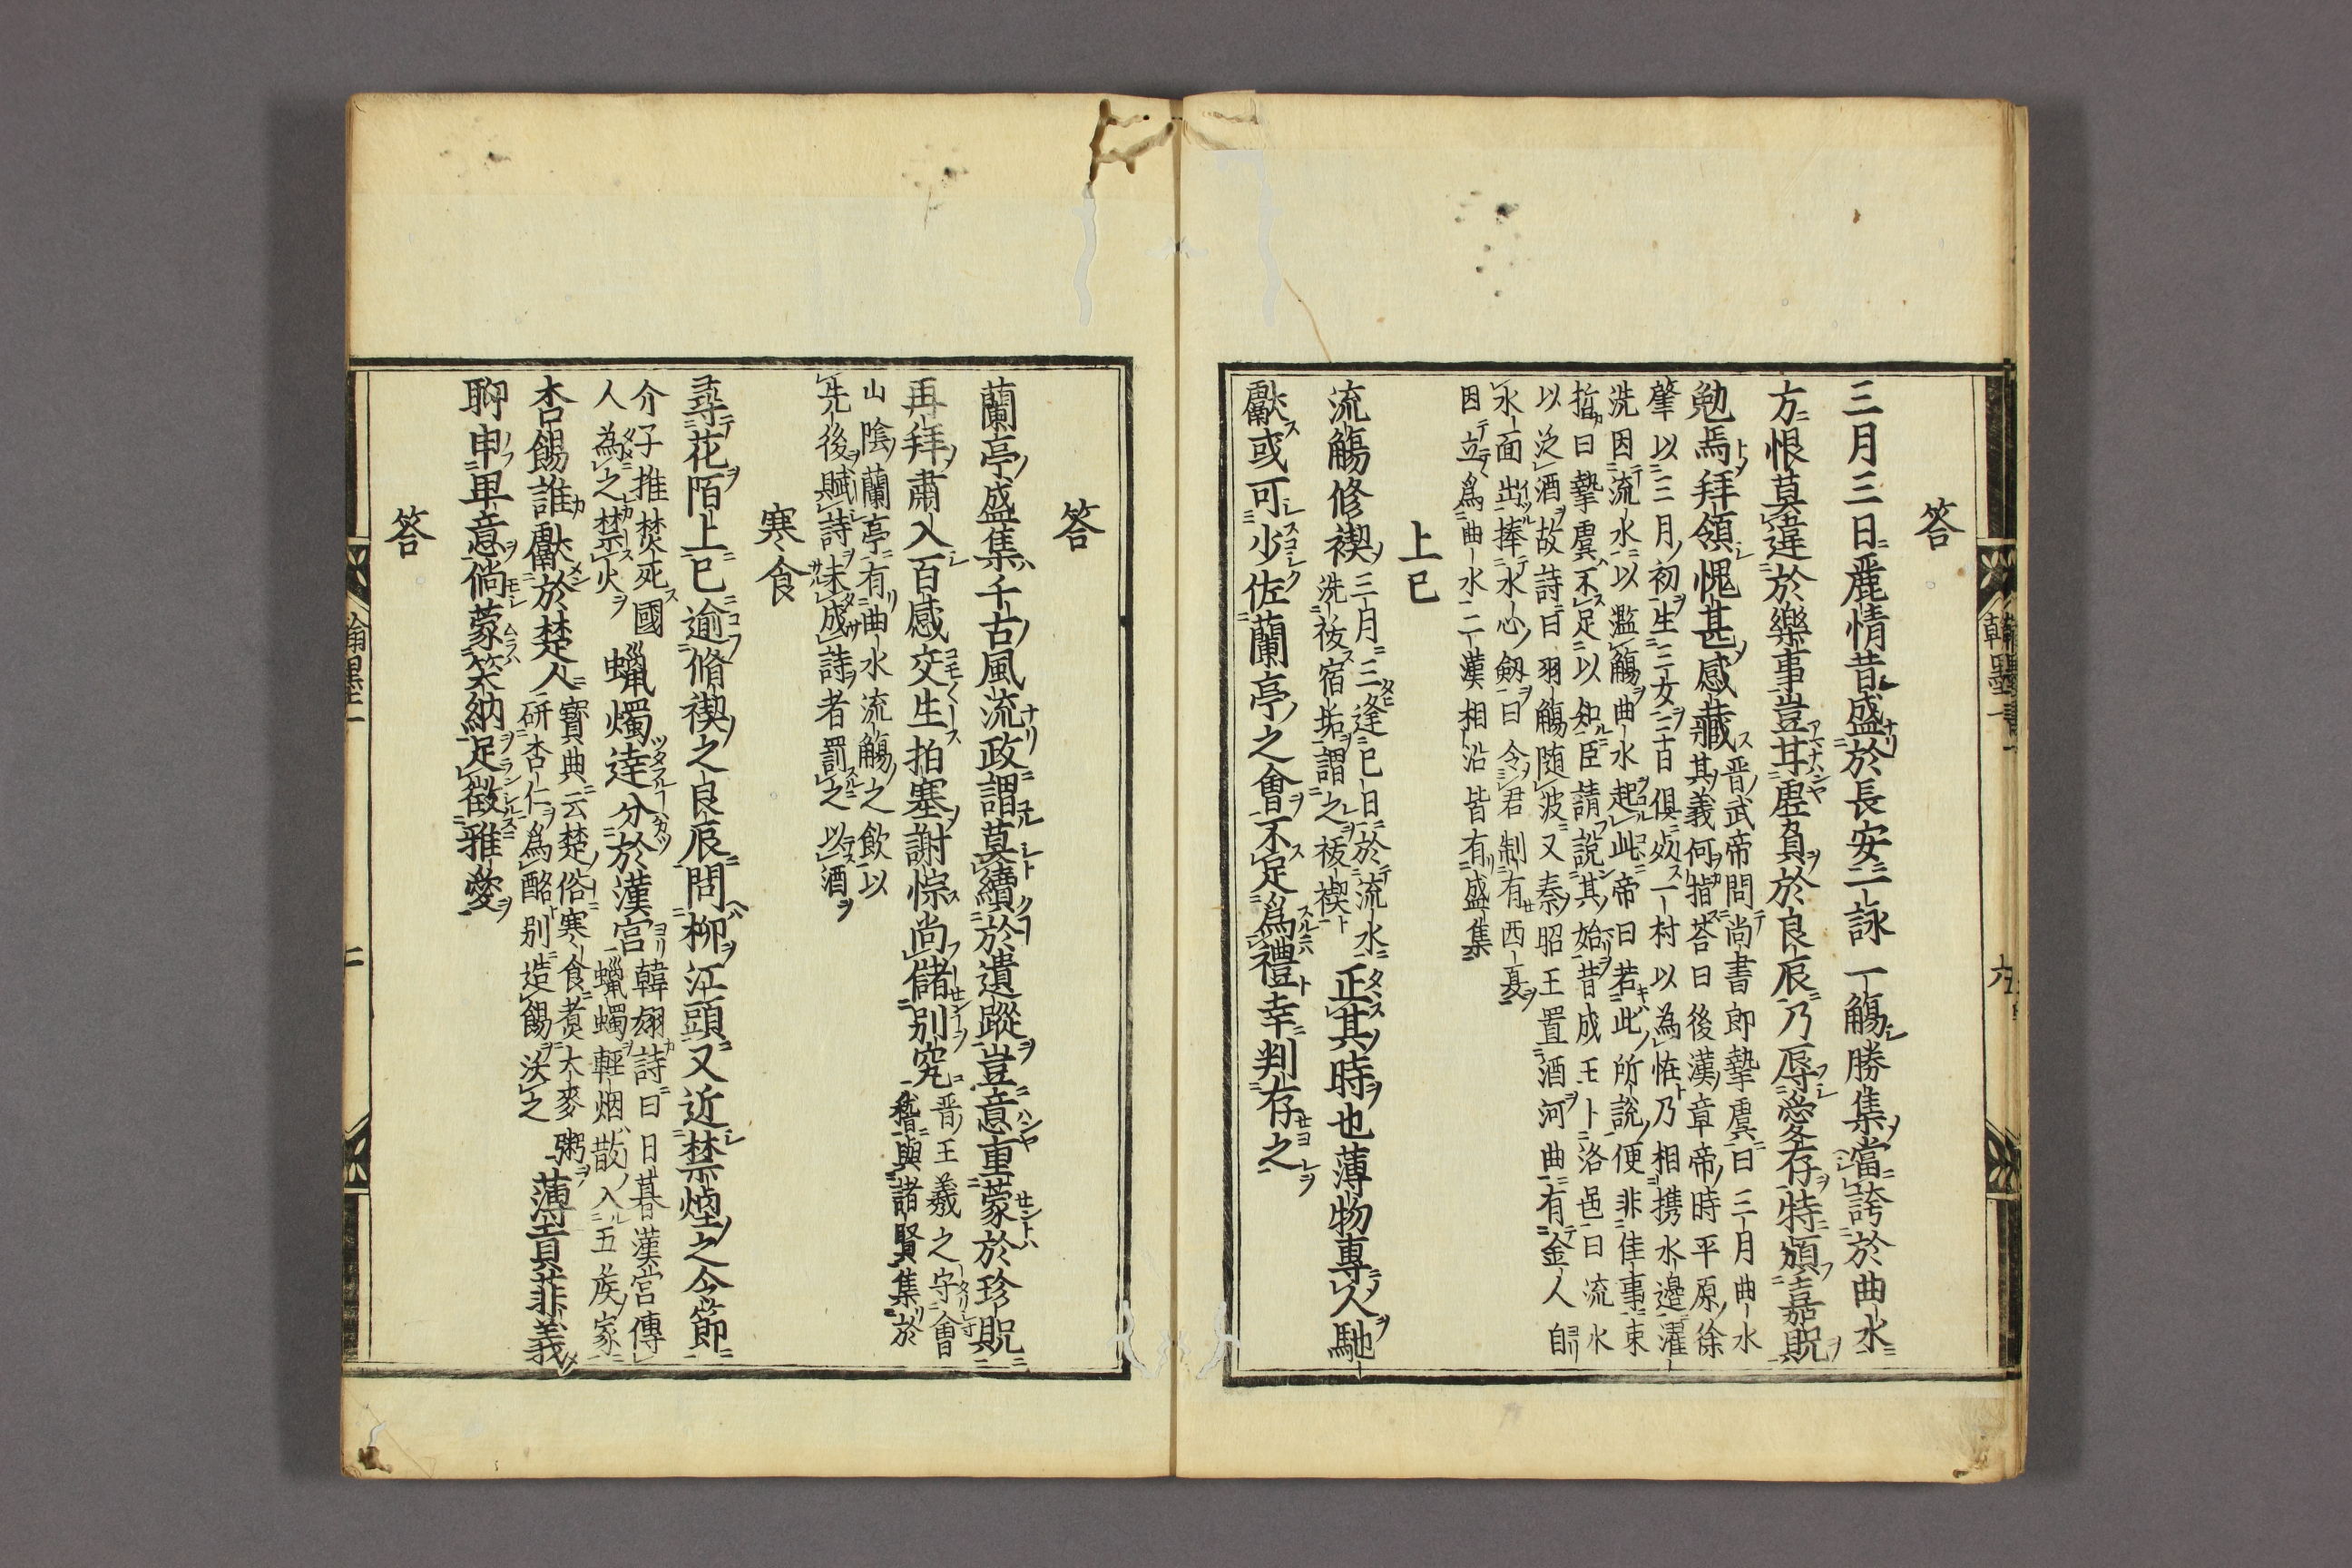 答
三月三日麗情昔盛於長安一詠一觴勝集當誇於曲水
方恨莫違於樂事豈甘虚負於良辰乃辱愛存特頒嘉貺
勉焉拜領愧甚感藏
晋武帝問尚書郎摯虞曰三月曲水
其義何指荅曰後漢章帝時平原徐
肇以三月初生三女三日俱亡一村以為恠乃相携水邉濯
洗因流水以濫觴曲水起此帝曰若此所說便非佳事束
晢曰摯虞不足以知臣請說其始昔成王卜洛邑曰流水
以泛酒故詩曰羽觴随波又秦昭王置酒河曲有金人自
水面出捧水心劔曰令君制有西夏
因立為曲水二漢相沿皆有盛集
上巳
流觴修禊
三月三逢巳日於流水
洗祓宿垢謂之祓禊
正其時也薄物專人馳
獻或可少佐蘭亭之會不足為禮幸判存之
答
蘭亭盛集千古風流政謂莫續於遺蹤豈意重蒙於珍貺
再拜肅入百感交生拍塞謝悰尚儲別究
晋王羲之守會
稽與諸賢集於
山陰蘭亭有曲水流觴之飲以
先後賦詩未成詩者罰之以酒
寒食
尋花陌上已逾脩禊之良辰問柳江頭又近禁煙之令節
介子推焚死國
人為之禁火
蠟燭逹分於漢宮
韓翃詩曰日暮漢宮傳
蠟蠋輕烟散入五族家
杏餳誰獻於楚人
寳典云楚俗寒食煮大麥粥
研杏仁為酪別造餳沃之
薄貢菲義
聊申卑意倘蒙笑納足徵雅愛
答
翰墨一
二